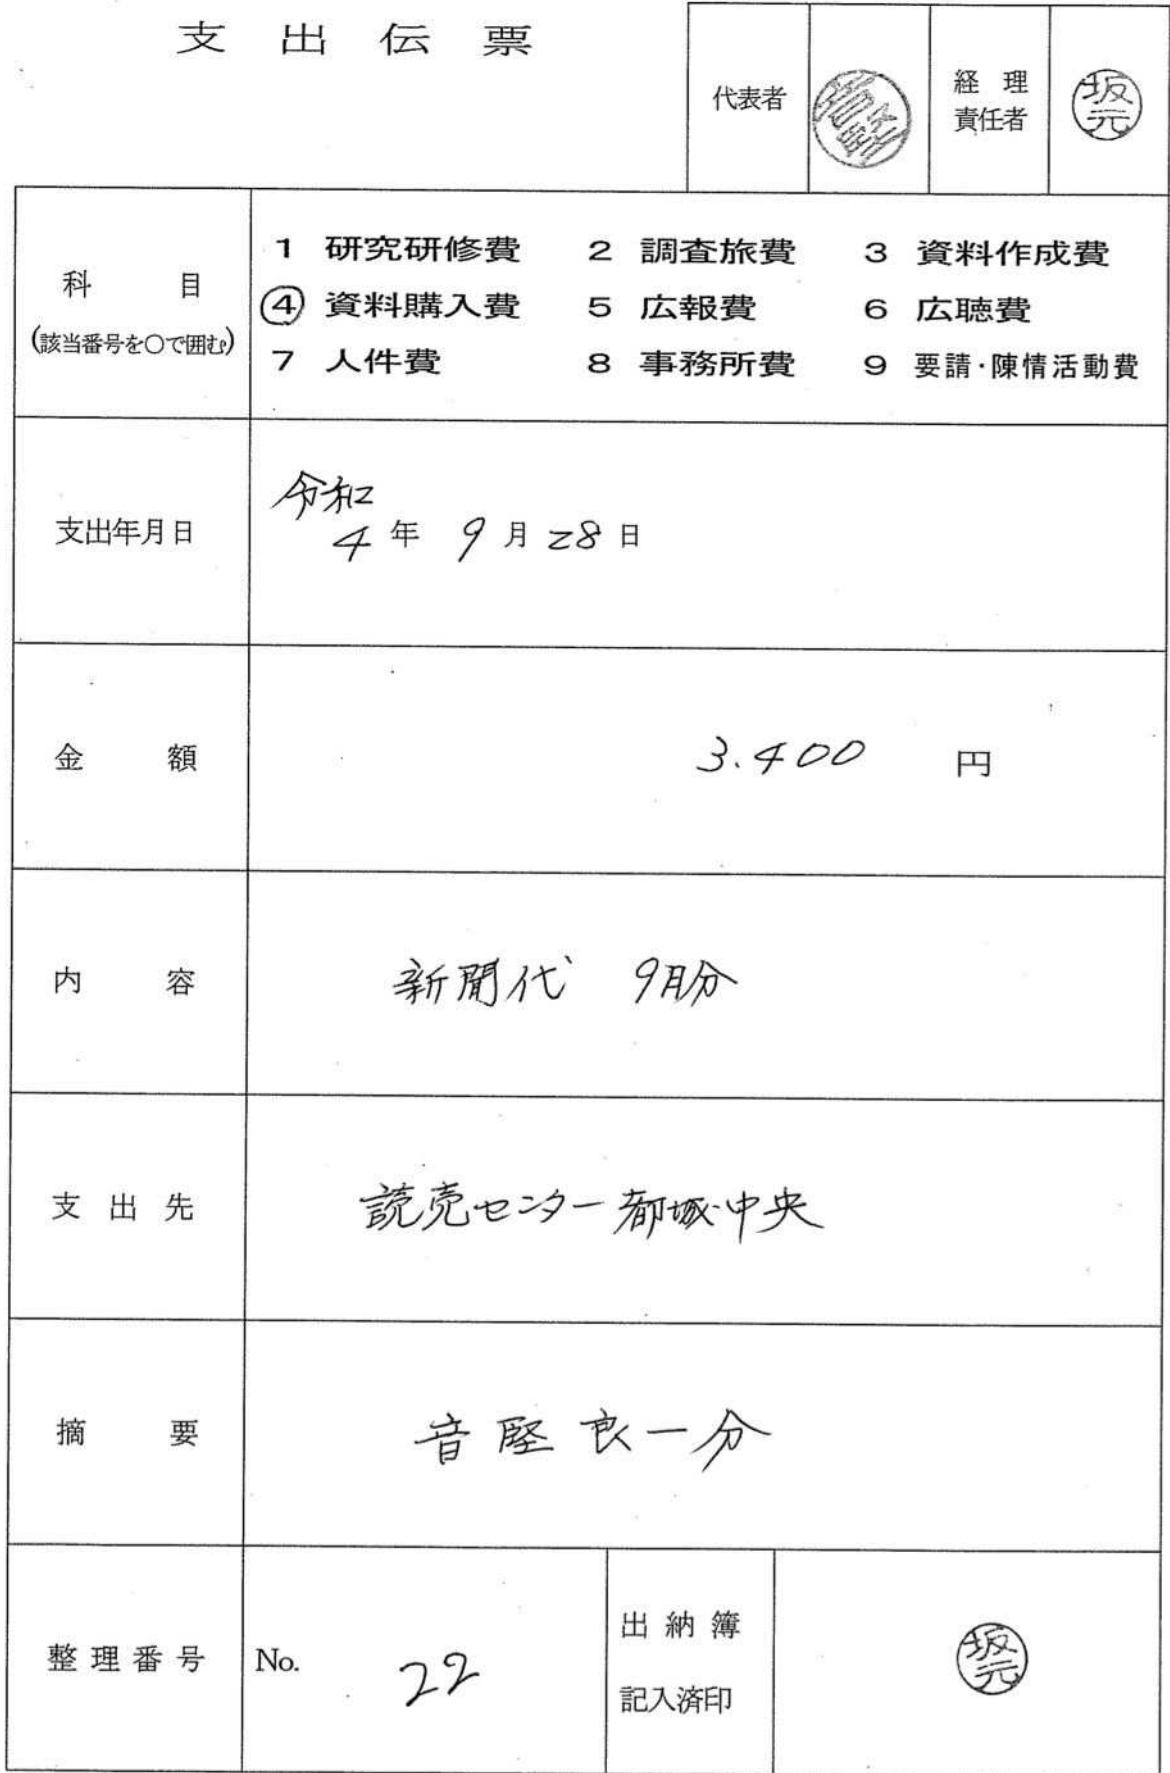 支出伝票
代表者
経理
責任者
坂元
科目
(該当番号を○で囲む)
1 研究研修費 2 調査旅費 3 資料作成費
④ 資料購入費 5 広報費 6 広聴費
7 人件費 8 事務所費 9 要請・陳情活動費
支出年月日
令和
4年 9月28日
金額
3.400 円
内容
新聞代 9月分
支出先
読売センター都城中央
摘要
音堅良一分
整理番号
No. 22
出納簿
記入済印
坂元